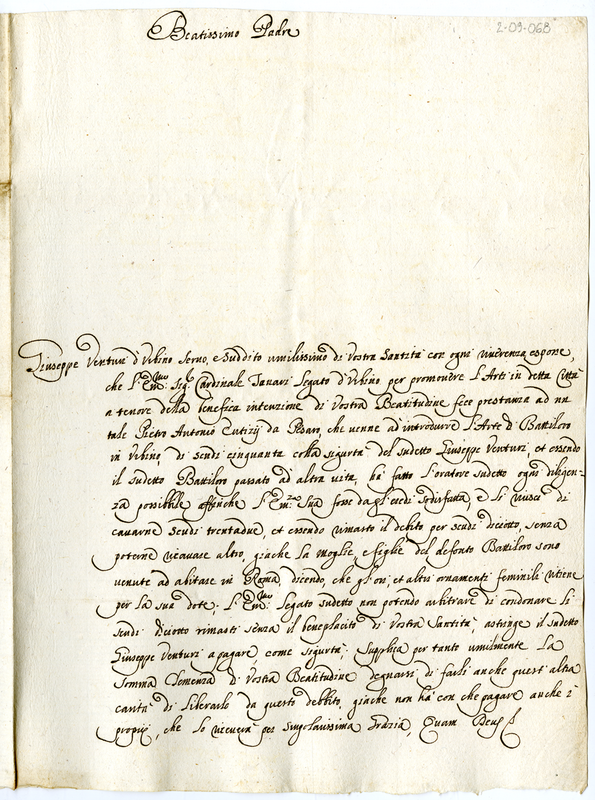 Beatissimo Padre
2-09-068
Giuseppe Venturi d'Vrbino seruo, e suddito umilissimo di Vostra Santità con ogni riuerenza espone,
che l'Em:mo Sig.r Cardinale Tanari Legato d'Vrbino per promouere l'Arti in detta Città
a tenore della benefica intenzione di Vostra Beatitudine fece prestanza ad un
tale Pietro Antonio da Pesaro, che uenne ad introdurre l'Arte d'Battiloro
in Vrbino, di scudi cinquanta colla sigurtà del sudetto Giuseppe Venturi, et essendo
il sudetto Battiloro passato ad altra uita, hà fatto l'oratore sudetto ogni diligen-
za possibile affinche l'Em:za Sua fosse dagl'eredi sodisfatta, e li riuscì di
cauarne scudi trentadue, et essendo rimasto il debito per scudi diciotto, senza
poterne ricauare altro, giache la moglie, e figlie del defonto Battiloro sono
uenute ad abitare in Roma dicendo, che gl'ori, et altri ornamenti feminili ritiene
per la sua dote; l'Em:mo Legato sudetto non potendo arbitrare di condonare li
scudi diciotto rimasti senza il beneplacito di Vostra Santità, astringe il sudetto
Giuseppe Venturi a pagare come sigurtà; Supplica per tanto umilmente la
somma Clemenza d'Vostra Beatitudine degnarsi di farli anche quest'altra
carità di liberarlo da questo debbito, giache non hà con che pagare anche i
propij, che lo riceuerà per singolarissima Grazia, Quam Deus